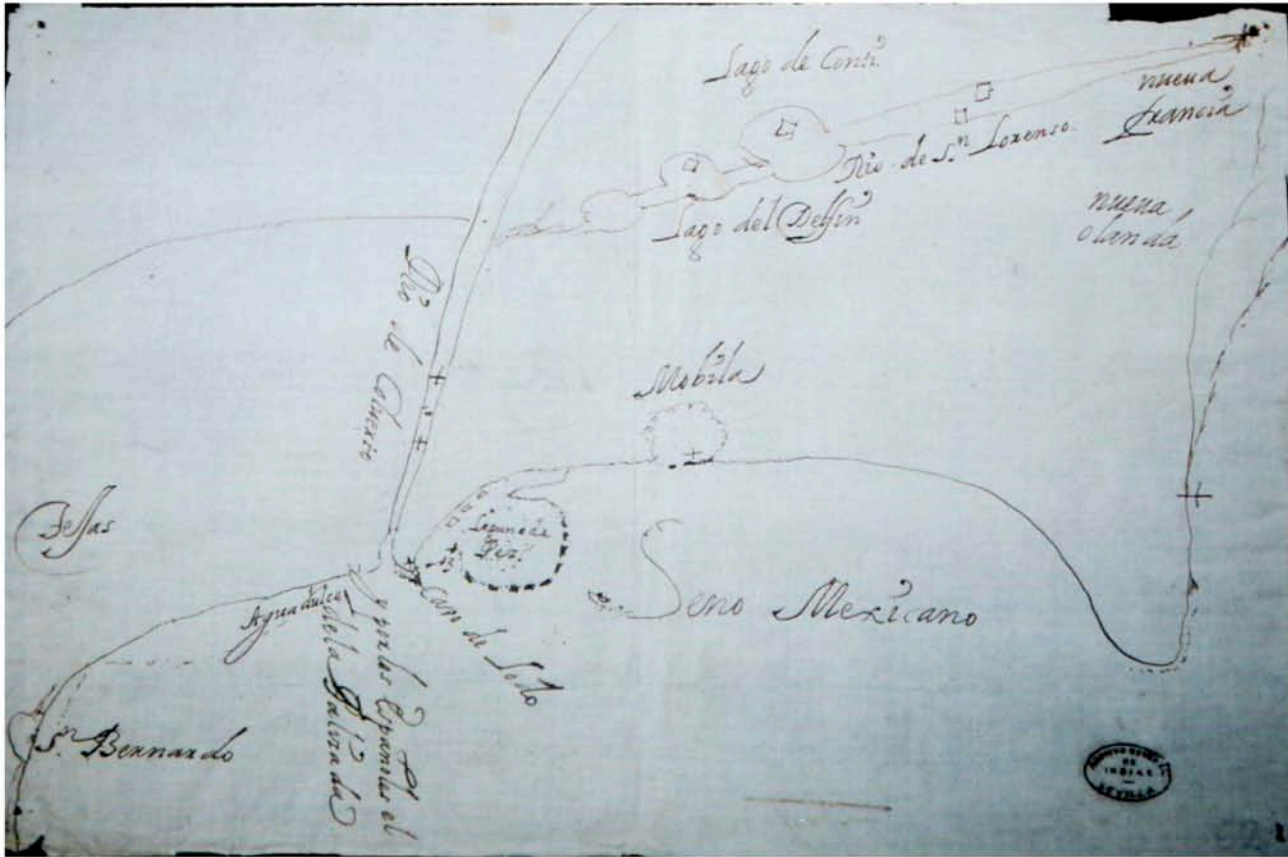 Lago de Conti
nueua
francia
Rio de S.n Lorenso
Lago del Delfin
nueua
olanda
Rio de Coluert
Mobila
Lagunade
Tessas
Aguadulce
can de Lodo
y por los Españoles el
de la Palizada
Seno Mexicano
S.n Bernardo
ARCHIVO
DE
INDIAS
SEVILLA